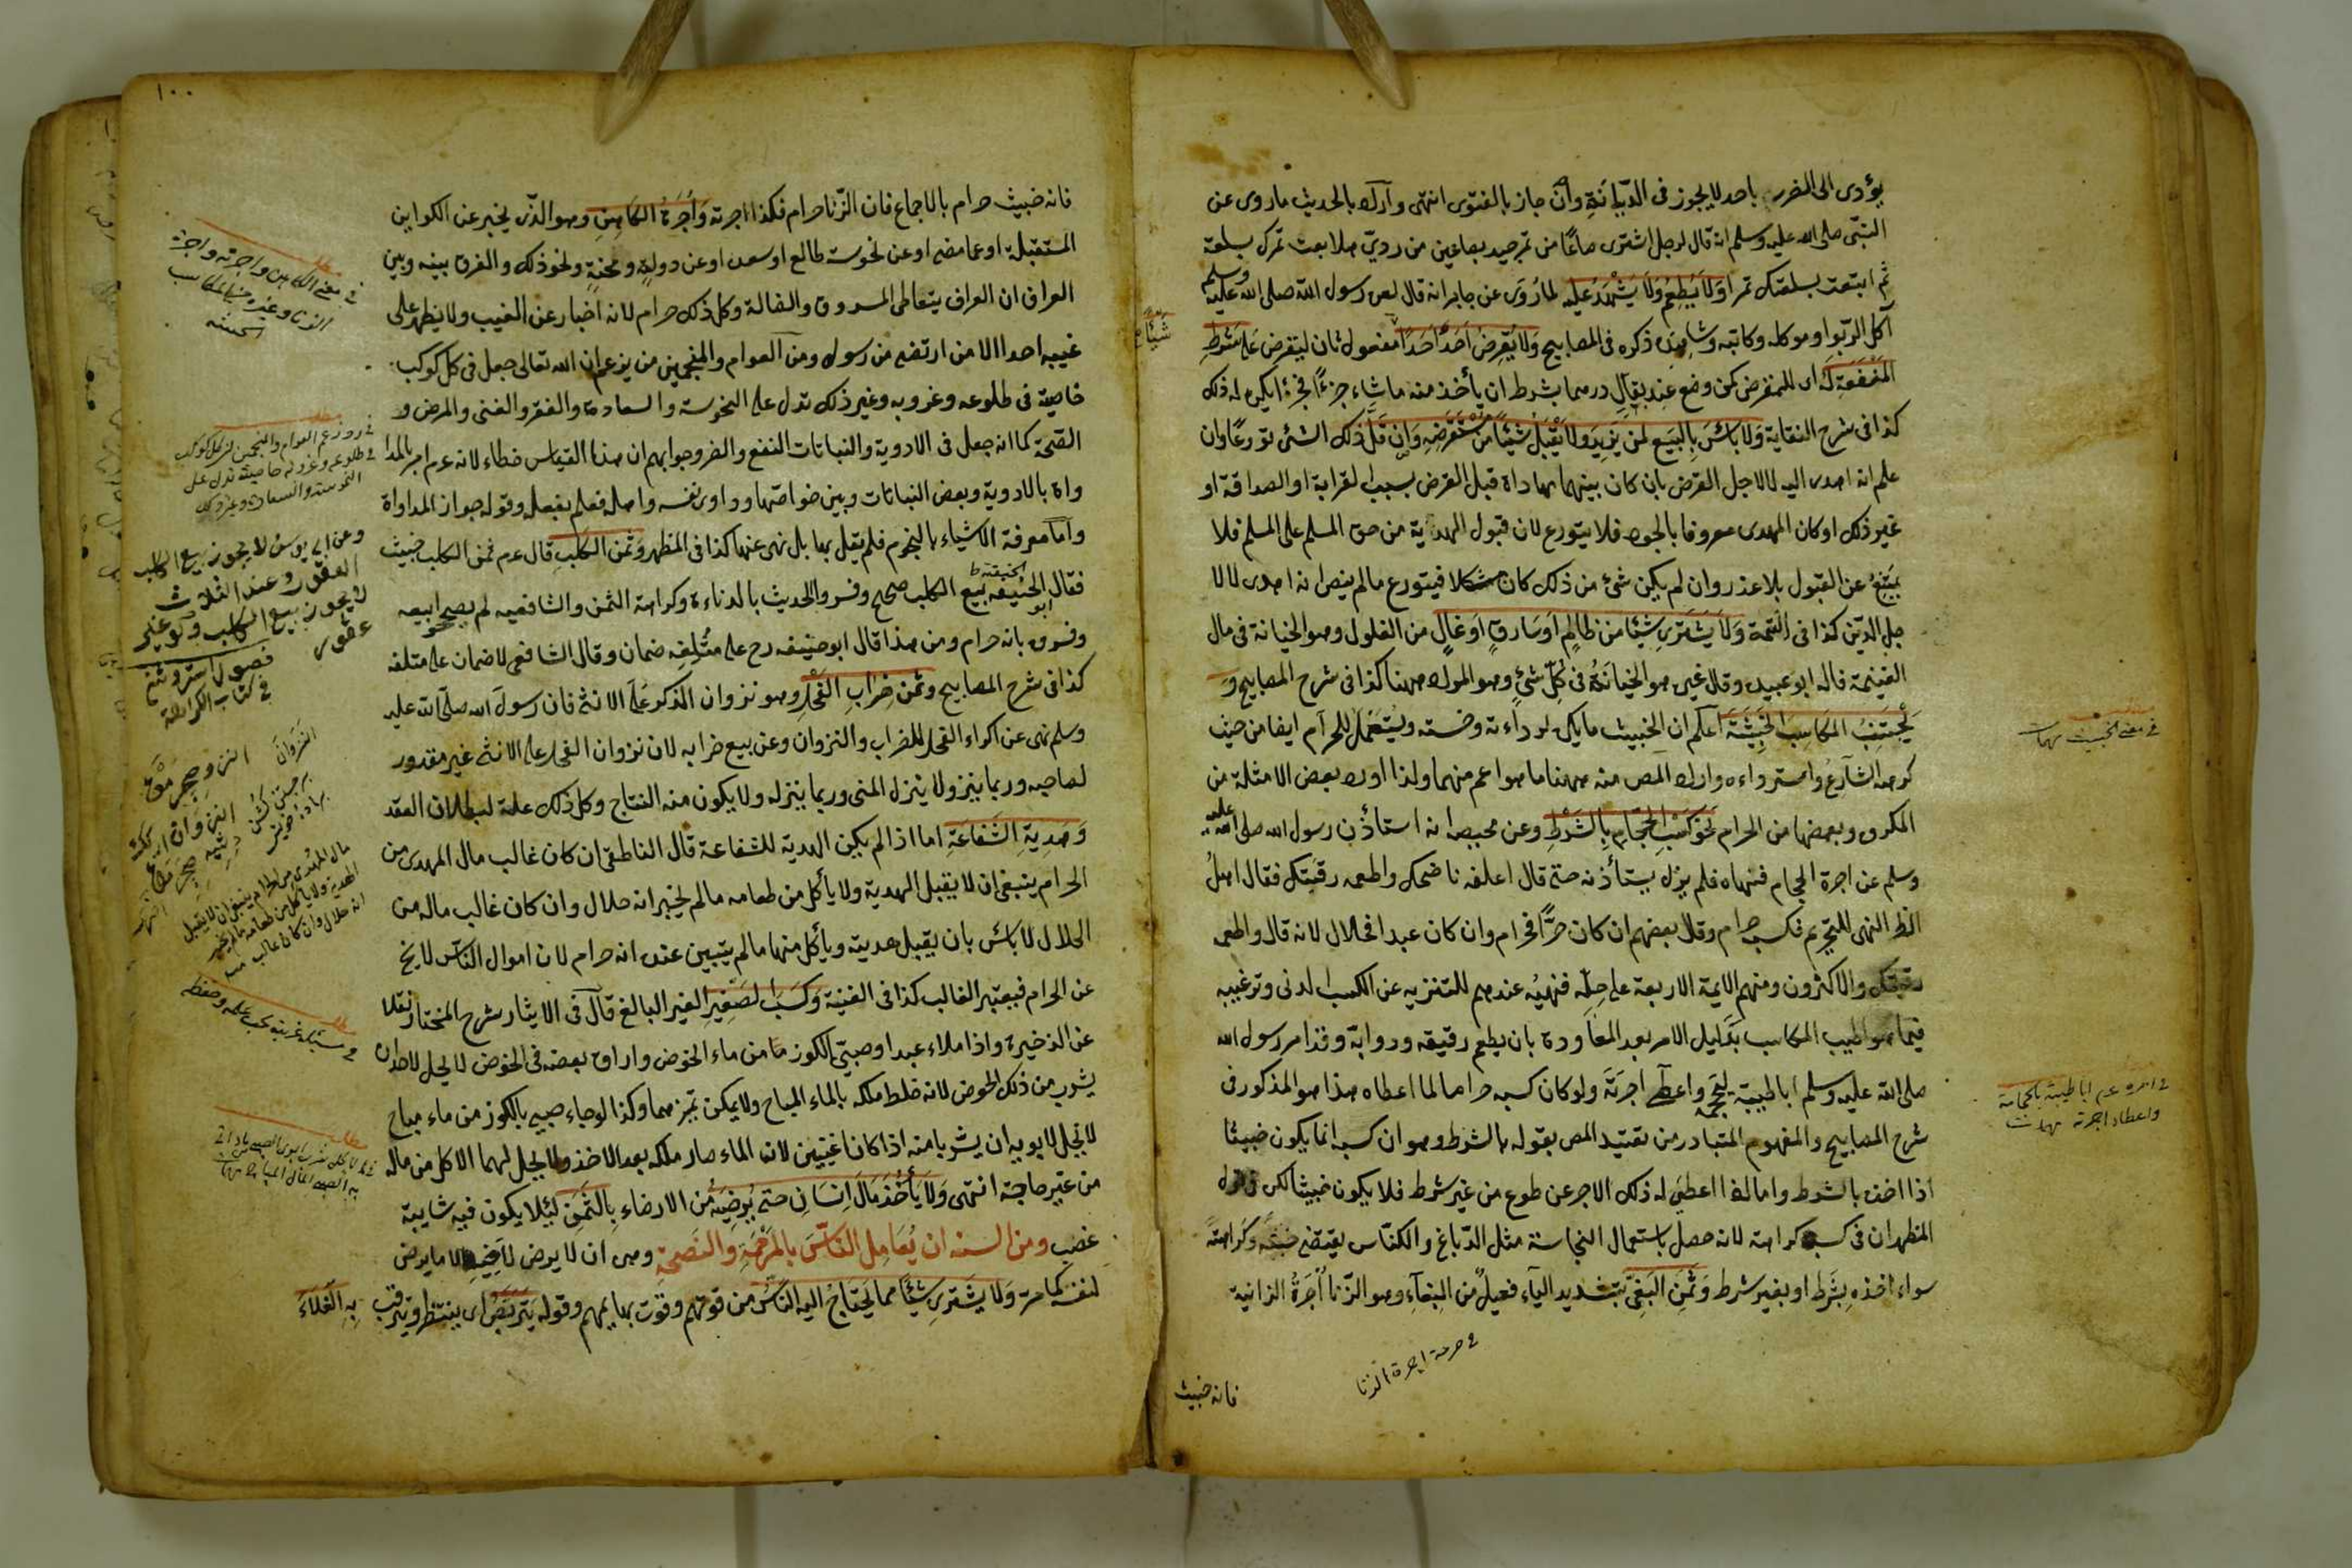 يؤدى الى الضرر باحد لا يجوز فى الديانة وان جاز بالفتوى انتهى واراد بالحديث ما روى عن
النبى صلى الله عليه وسلم انه قال لرجل اشترى صاعا من تمر جيد بصاعين من ردئ هلا بعت تمرك بسلعة
ثم ابتعت بسلعتك تمرا ولا يطعم ولا يشهد عليه لما روى عن جابر انه قال لعن رسول الله صلى الله عليه وسلم
آكل الربوا وموكله وكاتبه وشاهده ذكره فى المصابيح ولا يقرض احدا احدا مفعول ثان ليقرض على شرط
شيئا
المنفعة له اى للمقرض كمن وضع عند بقال درهما بشرط ان يأخذ منه ما شاء جزءا فجزءا يكره له ذلك
كذا فى شرح النقاية ولا بأس بالبيع لمن يزيد ولا يقبل شيئا من مستقرضه وان قل ذلك الشئ تورعا وان
علم انه اهدى اليه لا لاجل القرض بان كان بينهما مهاداة قبل القرض بسبب القرابة او الصداقة او
غير ذلك او كان المهدى معروفا بالجود فلا يتورع لان قبول الهدية من حق المسلم على المسلم فلا
يمتنع عن القبول بلا عذر وان لم يكن شئ من ذلك كان مشكلا فيتورع ما لم ينص انه اهدى لا لا
جل الدين كذا فى التتمة ولا يشترى شيئا من ظالم او سارق او غال من الغلول وهو الخيانة فى مال
الغنيمة قاله ابو عبيد وقال غيره هو الخيانة فى كل شئ وهو المراد ههنا كذا فى شرح المصابيح و
يجتنب المكاسب الخبيثة اعلم ان الخبيث ما يكره لرداءته وخسته ويستعمل للحرام ايضا من حيث
فى معنى الخبيث
كرهه الشارع واسترداءه واراد المص منه ههنا ما هو اعم منهما ولذا اورد بعض الامثلة من
المكروه وبعضها من الحرام نحو كسب الحجام بالشرط وعن محيصة انه استأذن رسول الله صلى الله عليه
وسلم عن اجرة الحجام فنهاه فلم يزل يستأذنه حتى قال اعلفه ناضحك واطعمه رقيقك فقال اهل
الظاهر النهى للتحريم فكسبه حرام وقال بعضهم ان كان حرا فحرام وان كان عبدا فحلال لانه قال واطعمه
رقيقك والاكثرون ومنهم الايمة الاربعة على حله فنهيه عندهم للتنزيه عن الكسب الدنى وترغيبه
فيما هو اطيب المكاسب بدليل الامر بعد المعاودة بان يطعم رقيقه ودوابه وقد امر رسول الله
صلى الله عليه وسلم ابا طيبة ليحجمه واعطاه اجرته ولو كان كسبه حراما لما اعطاه هذا هو المذكور فى
فى امره عم ابا طيبة بالحجامة
واعطاه اجرته
شرح المصابيح والمفهوم المتبادر من تقييد المص بقوله بالشرط وهو ان كسبه انما يكون خبيثا
اذا اخذه بالشرط واما اذا اعطى له ذلك الاجر عن طوع من غير شرط فلا يكون خبيثا لكن قول
المظهر ان فى كسبه كراهة لانه حصل باستعمال النجاسة مثل الدباغ والكناس يقتضى خبثه وكراهته
سواء اخذه بشرط او بغير شرط وثمن البغى بتشديد الياء فعيل من البغاء وهو الزنا اجرة الزانية
فى حرمة اجرة الزنا
فانه خبيث
١٠٠
فانه خبيث حرام بالاجماع فان الزنا حرام فكذا اجرته واجرة الكاهن وهو الذى يخبر عن الكواين
المستقبلة او عما مضى او عن نحوسة طالع او سعد او عن دولة ومحنة ونحو ذلك والفرق بينه وبين
فى معنى الكاهن واجرته واجرة
الزنا وغيره من المكاسب
الخبيثة
العراف ان العراف يتعاطى المسروق والضالة وكل ذلك حرام لانه اخبار عن الغيب ولا يظهر على
غيبه احدا الا من ارتضى من رسول ومن العوام والمنجمين من يزعم ان الله تعالى جعل فى كل كوكب
خاصية فى طلوعه وغروبه وغير ذلك تدل على النحوسة والسعادة والفقر والغنى والمرض و
الصحة كما انه جعل فى الادوية والنباتات النفع والضر وجوابهم ان هذا القياس خطاء لانه عم امر بالمدا
فى رد زعم العوام والمنجمين ان لكل كوكب
فى طلوعه وغروبه خاصية تدل على
النحوسة والسعادة وغير ذلك
واة بالادوية وبعض النباتات وبين خواصها وداوى نفسه واهله فعلم بفعله وقوله جواز المداواة
واما معرفة الاشياء بالنجوم فلم يقل بها بل نهى عنها كذا فى المظهر وثمن الكلب قال عم ثمن الكلب خبيث
فقال ابو حنيفة بيع الكلب صحيح وفسر والحديث بالدناءة وكراهة الثمن والشافعى لم يصحح بيعه
وعن ابى يوسف لا يجوز بيع الكلب
العقور وعند الثلاث
لا يجوز بيع الكلب ولو غير
عقور
فصول استروشنى
فى كتاب الكراهة
وفسره بانه حرام ومن هذا قال ابو حنيفة رح على متلفه ضمان وقال الشافعى لا ضمان على متلفه
كذا فى شرح المصابيح وثمن ضراب الفحل وهو نزوان الذكر على الانثى فان رسول الله صلى الله عليه
وسلم نهى عن اكراء الفحل للضراب والنزوان وعن بيع ضرابه لان نزوان الفحل على الانثى غير مقدور
لصاحبه وربما ينزو ولا ينزل المنى وربما ينزله ولا يكون منه النتاج وكل ذلك علة لبطلان العقد
وهدية الشفاعة اما اذا لم يكن الهدية للشفاعة قال الناطفى ان كان غالب مال المهدى من
الحرام ينبغى ان لا يقبل الهدية ولا يأكل من طعامه ما لم يخبر انه حلال وان كان غالب ماله من
مال المهدى من الحرام ينبغى ان لا يقبل
الهدية ولا يأكل من طعامه ما لم يخبر
انه حلال وان كان غالب
الحلال لا بأس بان يقبل هديته ويأكل منها ما لم يتبين عنده انه حرام لان اموال الناس لا يخ
عن الحرام فيعتبر الغالب كذا فى القنية وكسب الصغير الغير البالغ قال فى الايثار شرح المختار نقلا
عن الذخيرة واذا ملاء عبد او صبى الكوز ماء من ماء الحوض واراق بعضه فى الحوض لا يحل لاحد ان
يشرب من ذلك الحوض لانه خلط ملكه بالماء المباح ولا يمكن تميزهما وكذا لو جاء صبى بالكوز من ماء مباح
لا يحل لابويه ان يشربا منه اذا كانا غنيين لان الماء صار ملكه بعد الاخذ ولا يحل لهما الاكل من ماله
من غير حاجة انتهى ولا يأخذ مال انسان حتى يرضيه من الارضاء بالثمن لئلا يكون فيه شايبة
غضب ومن السنة ان يعامل الناس بالمرحمة والنصحة وهى ان لا يرضى لاخيه الا ما يرضى
لنفسه كما مر ولا يشترى شيئا مما يحتاج اليه الناس من قوتهم وقوت بهايمهم وقوله يتربص اى ينتظر ويترقب به الغلاء